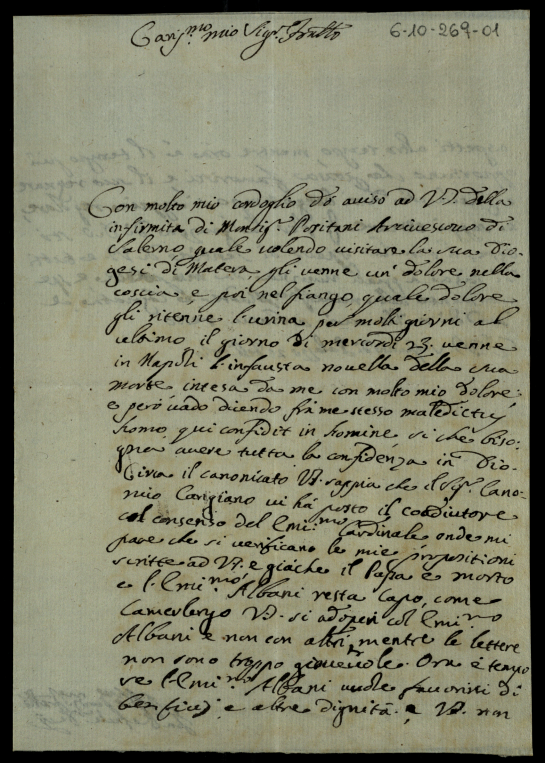 6-10-269-01
Cariss.mo mio Sig.r Fratello
Con molto mio cordoglio do aviso ad V.S. della
infirmità di Monsig.r Positani Arcivescovo di
Salerno, quale volendo visitare la sua Dio-
gesi di Matera gli venne un' dolore nella
coscia, e poi nel fiango, quale dolore
gli ritenne l'urina per molti giorni al
ultimo il giorno di mercordì 23. venne
in Napoli l'infausta novella della sua
morte intesa da me con molto mio dolore:
e però vado dicendo frà me stesso maledictus
homo, qui confidit in homine, si che biso-
gna avere tutta la confidenza in Dio.
Circa il canonicato V.S. sappia che il Sig.r Cano-
nico Carigiano vi hà posto il coadiutore
col consenso del Emi.mo Cardinale onde mi
pare che si verificano le mie propositioni
scritte ad V.S. e giàche il Papa è morto
e l'Emi.mo Albani resta capo, come
Camerlengo V.S. si adoperi col Emi.mo
Albani e non con altri, mentre le lettere
non sono troppo giovevole. Ora è tempo
se l'Emi.mo Albani vuole favorirti di
beneficij e altre dignità. e V.S. non